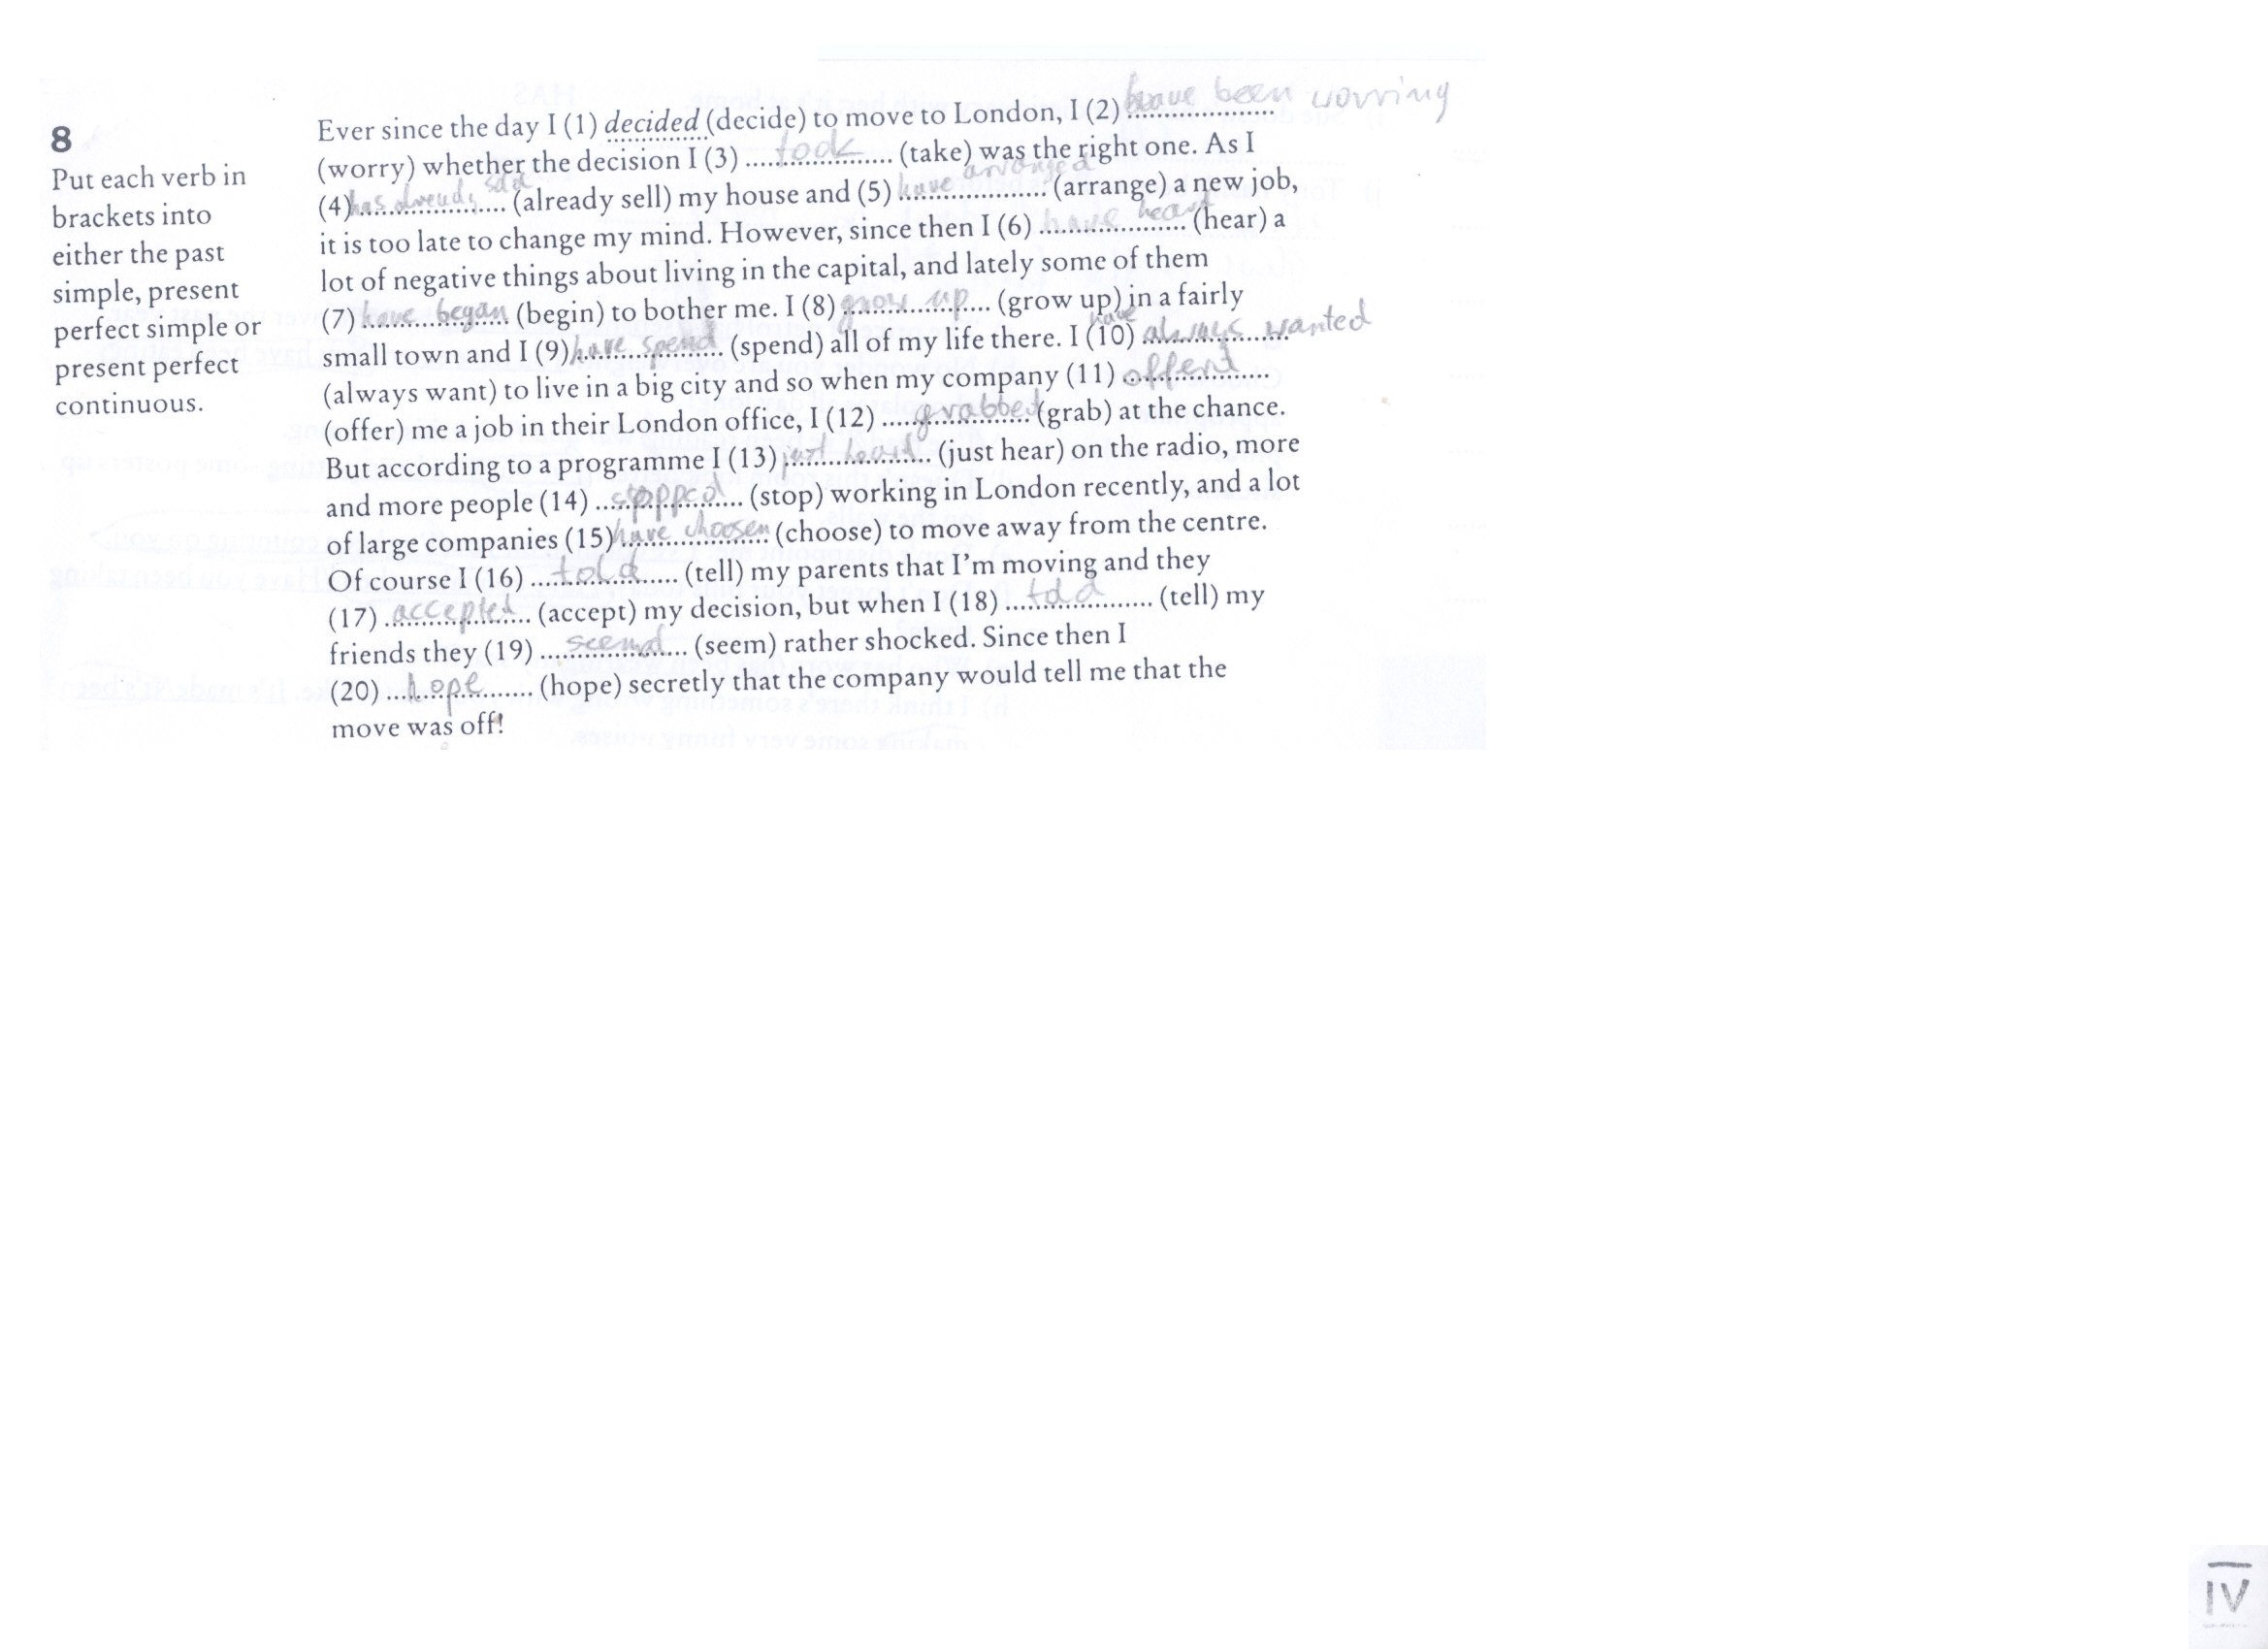 have been worring
8
Ever since the day I (1) decided (decide) to move to London, I (2)
(worry) whether the decision I (3) took (take) was the right one. As I
Put each verb in
brackets into
either the past
simple, present
perfect simple or
present perfect
continuous.
(4) has already sold (already sell) my house and (5) have arranged (arrange) a new job,
it is too late to change my mind. However, since then I (6) have heard (hear) a
lot of negative things about living in the capital, and lately some of them
(7) have began (begin) to bother me. I (8) grow up (grow up) in a fairly
small town and I (9) have spend (spend) all of my life there. I (10) have always wanted
(always want) to live in a big city and so when my company (11)
(offer) me a job in their London office, I (12) grabbed (grab) at the chance.
But according to a programme I (13) just heard (just hear) on the radio, more
and more people (14) stopped (stop) working in London recently, and a lot
of large companies (15) have choosen (choose) to move away from the centre.
Of course I (16) told (tell) my parents that I'm moving and they
(17) accepted (accept) my decision, but when I (18) told (tell) my
friends they (19) (seem) rather shocked. Since then I
(20) hope (hope) secretly that the company would tell me that the
move was off!
IV